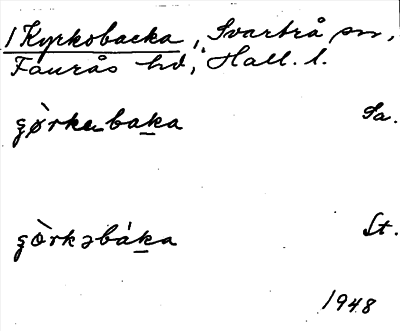 1 Kyrkobacka, Svartrå sn,
Faurås hd, Hall. l.
ʒø̀rkəbaka Sa.
ʒòrkəbáka St.
1948